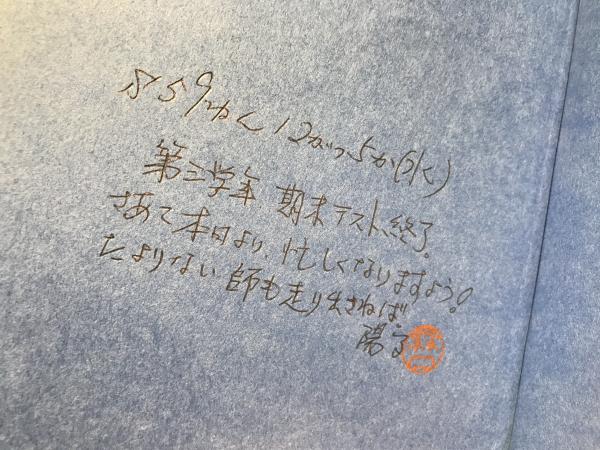 S59ねん12がつ5か(水)
第三学年 期末テスト、終了。
さあて本日より、忙しくなりますよう!
たよりない師も走り出さねば。
陽